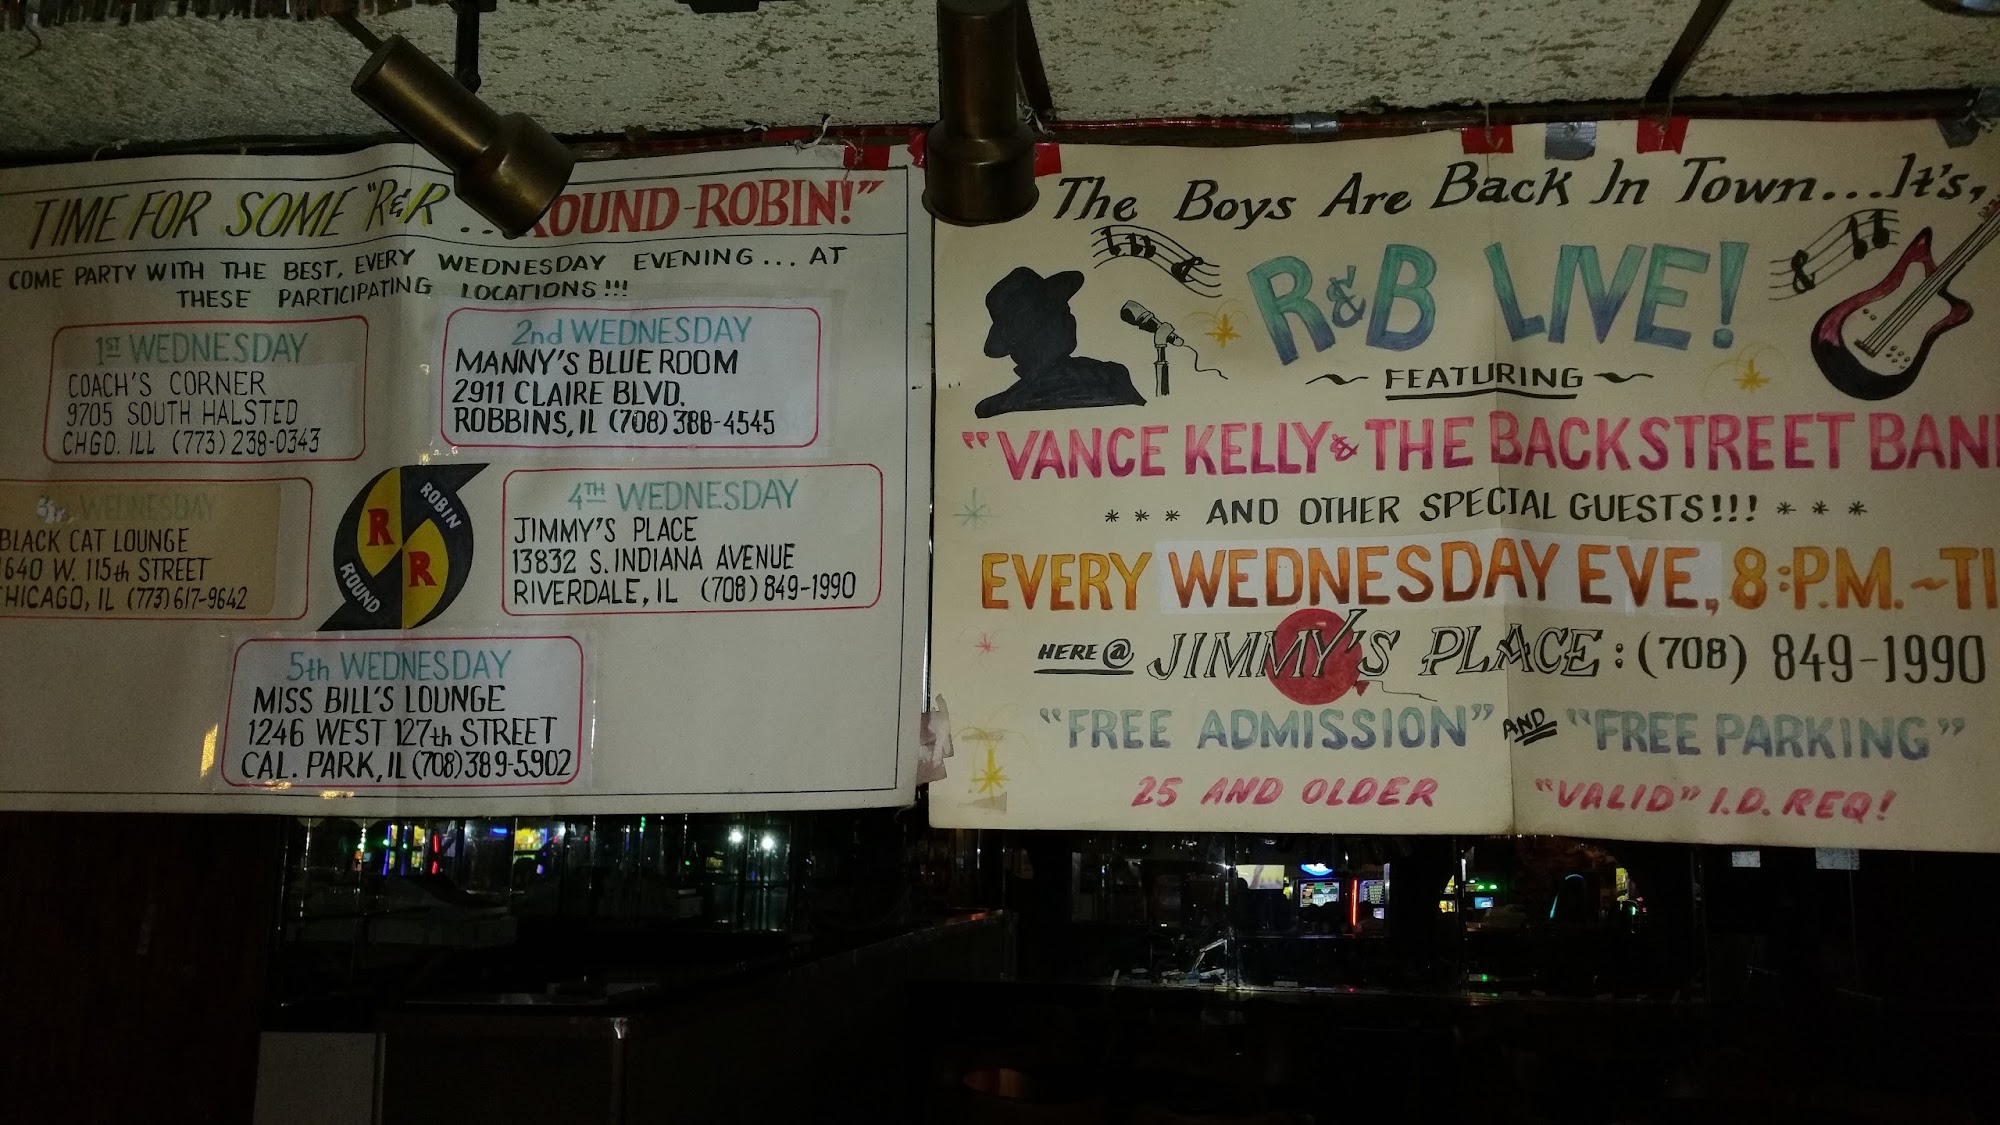 TIME FOR SOME "R&R ... ROUND-ROBIN!"
COME PARTY WITH THE BEST, EVERY WEDNESDAY EVENING... AT
THESE PARTICIPATING LOCATIONS!!!
1ST WEDNESDAY
COACH'S CORNER
9705 SOUTH HALSTED
CHGO. ILL (773) 238-0343
2nd WEDNESDAY
MANNY'S BLUE ROOM
2911 CLAIRE BLVD.
ROBBINS, IL (708) 388-4545
3rd WEDNESDAY
BLACK CAT LOUNGE
1640 W. 115th STREET
CHICAGO, IL (773) 617-9642
ROBIN
R
R
ROUND
4TH WEDNESDAY
JIMMY'S PLACE
13832 S. INDIANA AVENUE
RIVERDALE, IL (708) 849-1990
5th WEDNESDAY
MISS BILL'S LOUNGE
1246 WEST 127th STREET
CAL. PARK, IL (708) 389-5902
The Boys Are Back In Town...It's,
R&B LIVE!
~ FEATURING ~
"VANCE KELLY & THE BACKSTREET BAN
* * * AND OTHER SPECIAL GUESTS!!! * * *
EVERY WEDNESDAY EVE, 8:P.M.~TI
HERE @ JIMMY'S PLACE: (708) 849-1990
"FREE ADMISSION" AND "FREE PARKING"
25 AND OLDER "VALID" I.D. REQ!